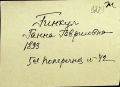 Пинкул
Ганна Гаврилівна
1893
5ая поперечна № 42